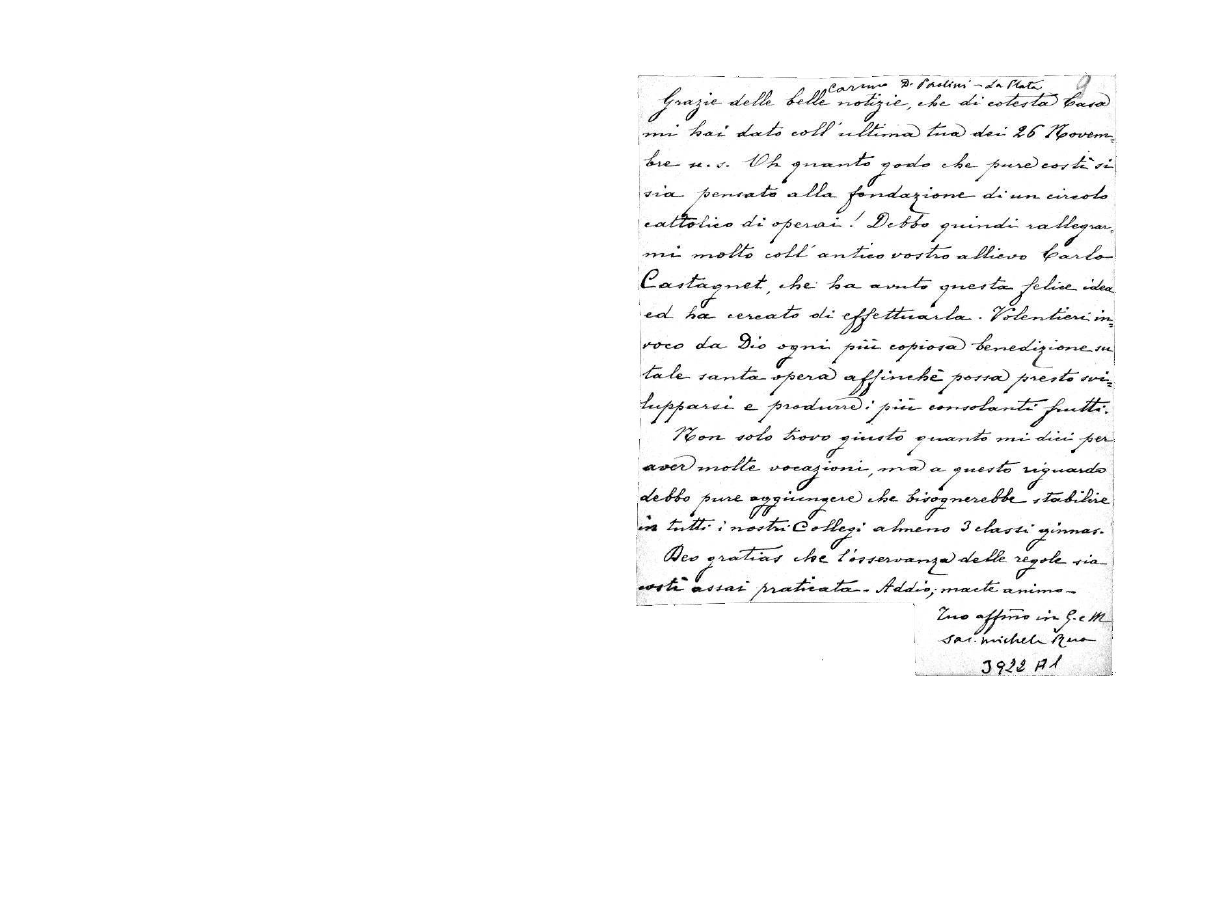 Carissimo D. Paolini - La Plata 9
Grazie delle belle notizie, che di cotesta Casa
mi hai dato coll'ultima tua dei 26 Novem=
bre u. s. Oh quanto godo che pure costì si
sia pensato alla fondazione di un circolo
cattolico di operai! Debbo quindi rallegrar=
mi molto coll'antico vostro allievo Carlo
Castagnet, che ha avuto questa felice idea
ed ha cercato di effettuarla. Volentieri in=
voco da Dio ogni più copiosa benedizione su
tale santa opera affinchè possa presto svi=
lupparsi e produrre i più consolanti frutti.
Non solo trovo giusto quanto mi dici per
aver molte vocazioni, ma a questo riguardo
debbo pure aggiungere che bisognerebbe stabilire
in tutti i nostri Collegi almeno 3 classi ginnas.
Deo gratias che l'osservanza delle regole sia
costì assai praticata - Addio; macte animo -
Tuo affmo in G. e M
Sac. Michele Rua
3922 A1